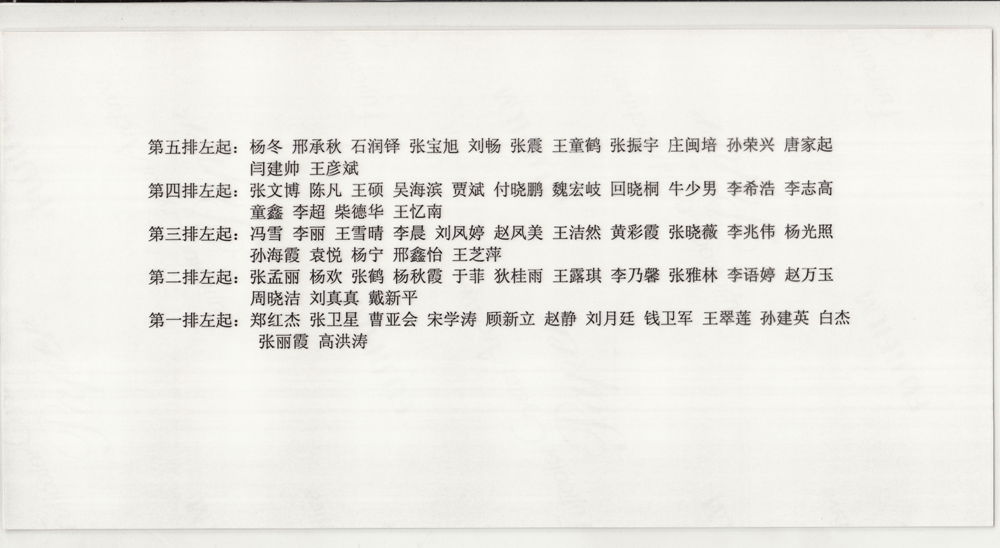 第五排左起：杨冬 邢承秋 石润铎 张宝旭 刘畅 张震 王童鹤 张振宇 庄闽培 孙荣兴 唐家起
闫建帅 王彦斌
第四排左起：张文博 陈凡 王硕 吴海滨 贾斌 付晓鹏 魏宏岐 回晓桐 牛少男 李希浩 李志高
童鑫 李超 柴德华 王忆南
第三排左起：冯雪 李丽 王雪晴 李晨 刘凤婷 赵凤美 王洁然 黄彩霞 张晓薇 李兆伟 杨光照
孙海霞 袁悦 杨宁 邢鑫怡 王芝萍
第二排左起：张孟丽 杨欢 张鹤 杨秋霞 于菲 狄桂雨 王露琪 李乃馨 张雅林 李语婷 赵万玉
周晓洁 刘真真 戴新平
第一排左起：郑红杰 张卫星 曹亚会 宋学涛 顾新立 赵静 刘月廷 钱卫军 王翠莲 孙建英 白杰
张丽霞 高洪涛